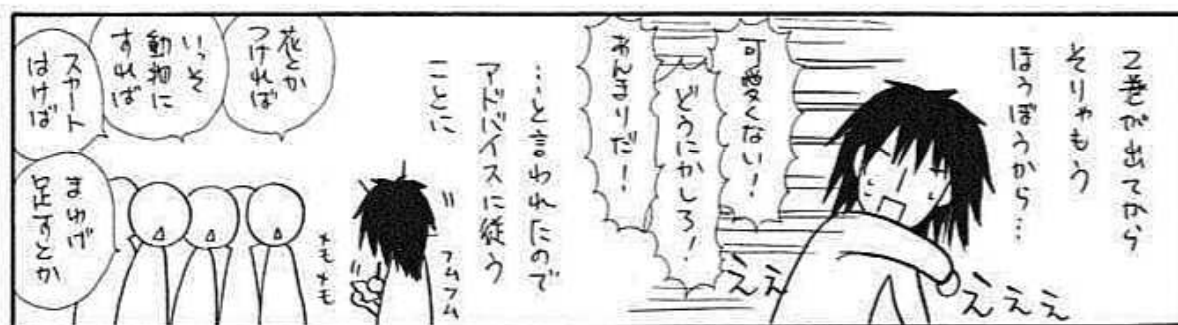 2巻が出てから
そりゃもう
ほうぼうから…
可愛くない!
どうにかしろ!
あんまりだ!
ええ
えええ
…と言われたので
アドバイスに従う
ことに
フムフム
メモメモ
花とか
つければ
いっそ
動物に
すれば
スカート
はけば
まゆげ
足すとか